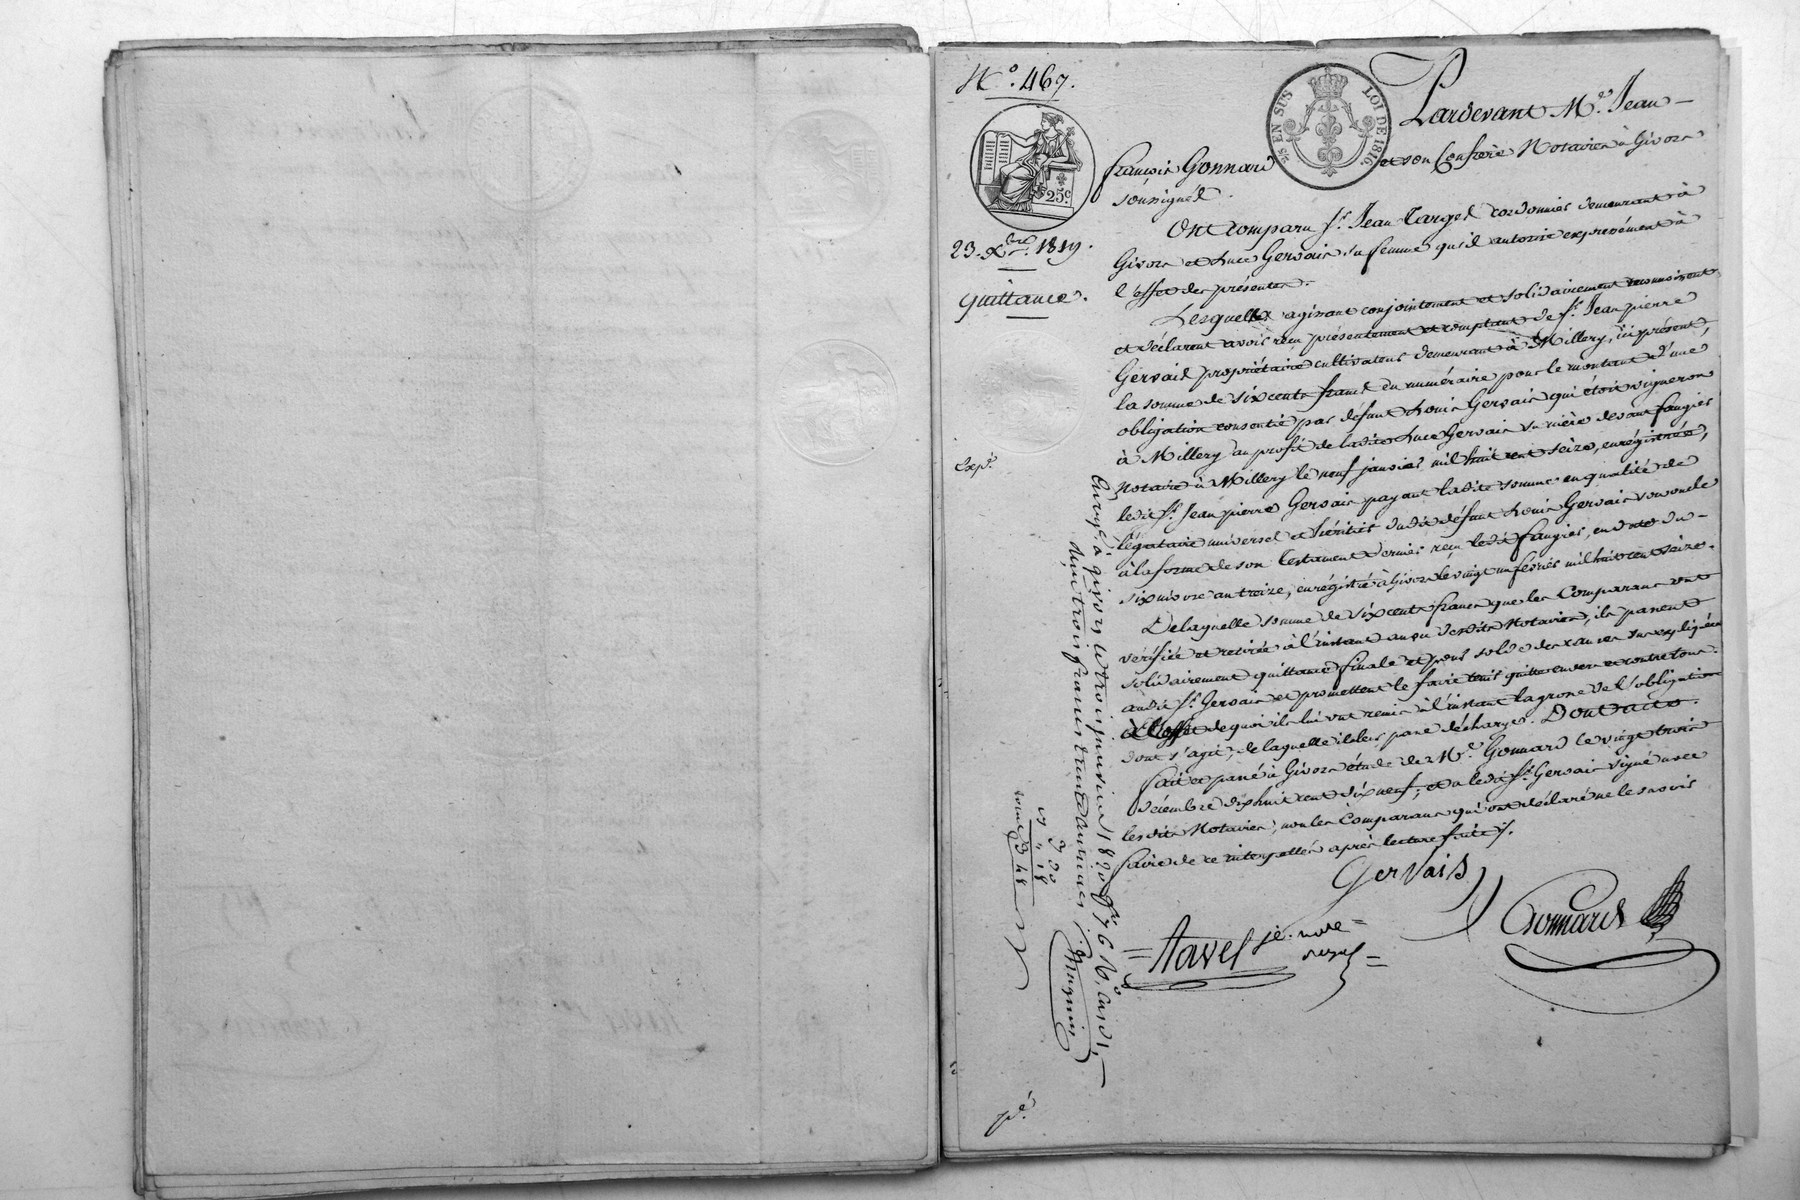 N.° 467.
25.c
23. Xbre. 1819.
quittance.
Exp.
EN SUS LOI DE 1816.
Pardevant M.e Jean
françois Gonnard et son Confrère Notaires à Givors
soussignés.
Ont comparu s.r Jean Targes cordonnier demeurant à
Givors et Luce Gervais sa femme qu'il autorise expressément à
l'effet des présentes.
Lesquels agissant conjointement et solidairement reconnoissent
et déclarent avoir reçu présentement et comptant de s.r Jean pierre
Gervais propriétaire cultivateur demeurant à Millery, ici présent,
la somme de six cents francs du numéraire pour le montant d'une
obligation consentie par défunt Louis Gervais qui étoit vigneron
à Millery au profit de ladite Luce Gervais sa nièce devant faugier
Notaire à Millery le neuf janvier mil huit cent seize, enregistrée,
ledit s.r Jean pierre Gervais payant ladite somme en qualité de
légataire universel et héritier dudit défunt Louis Gervais son oncle
à la forme de son testament dernier reçu ledit faugier, en date du
six nivose an treize, enregistré à Givors le vingt un février mil huit cent seize.
De laquelle somme de six cents francs que les Comparans ont
vérifiée et retirée à l'instant au vu desdits Notaires, ils passent
solidairement quittance finale et pour solde des causes sus expliquées
audit s.r Gervais et promettent le faire tenir quitte envers et contre tous.
à l'effet de quoi ils lui ont remis à l'instant la grosse de l'obligation
dont s'agit, de laquelle il leur passe décharge. Dont acte.
fait et passé à Givors étude de M.e Gonnard le vingt trois
décembre dix huit cent dix neuf; et a ledit s.r Gervais signé avec
lesdits Notaires, non les Comparans qui ont déclaré ne le savoir
faire de ce interpellés après lecture faite ./.
Gervais
Gonnard
Tavel je. notre
royal
Enreg. à givors le trois janvier 1820 f.° 76 V.° cas. 1,
reçu trois francs trente centimes
3 30
18
3 48